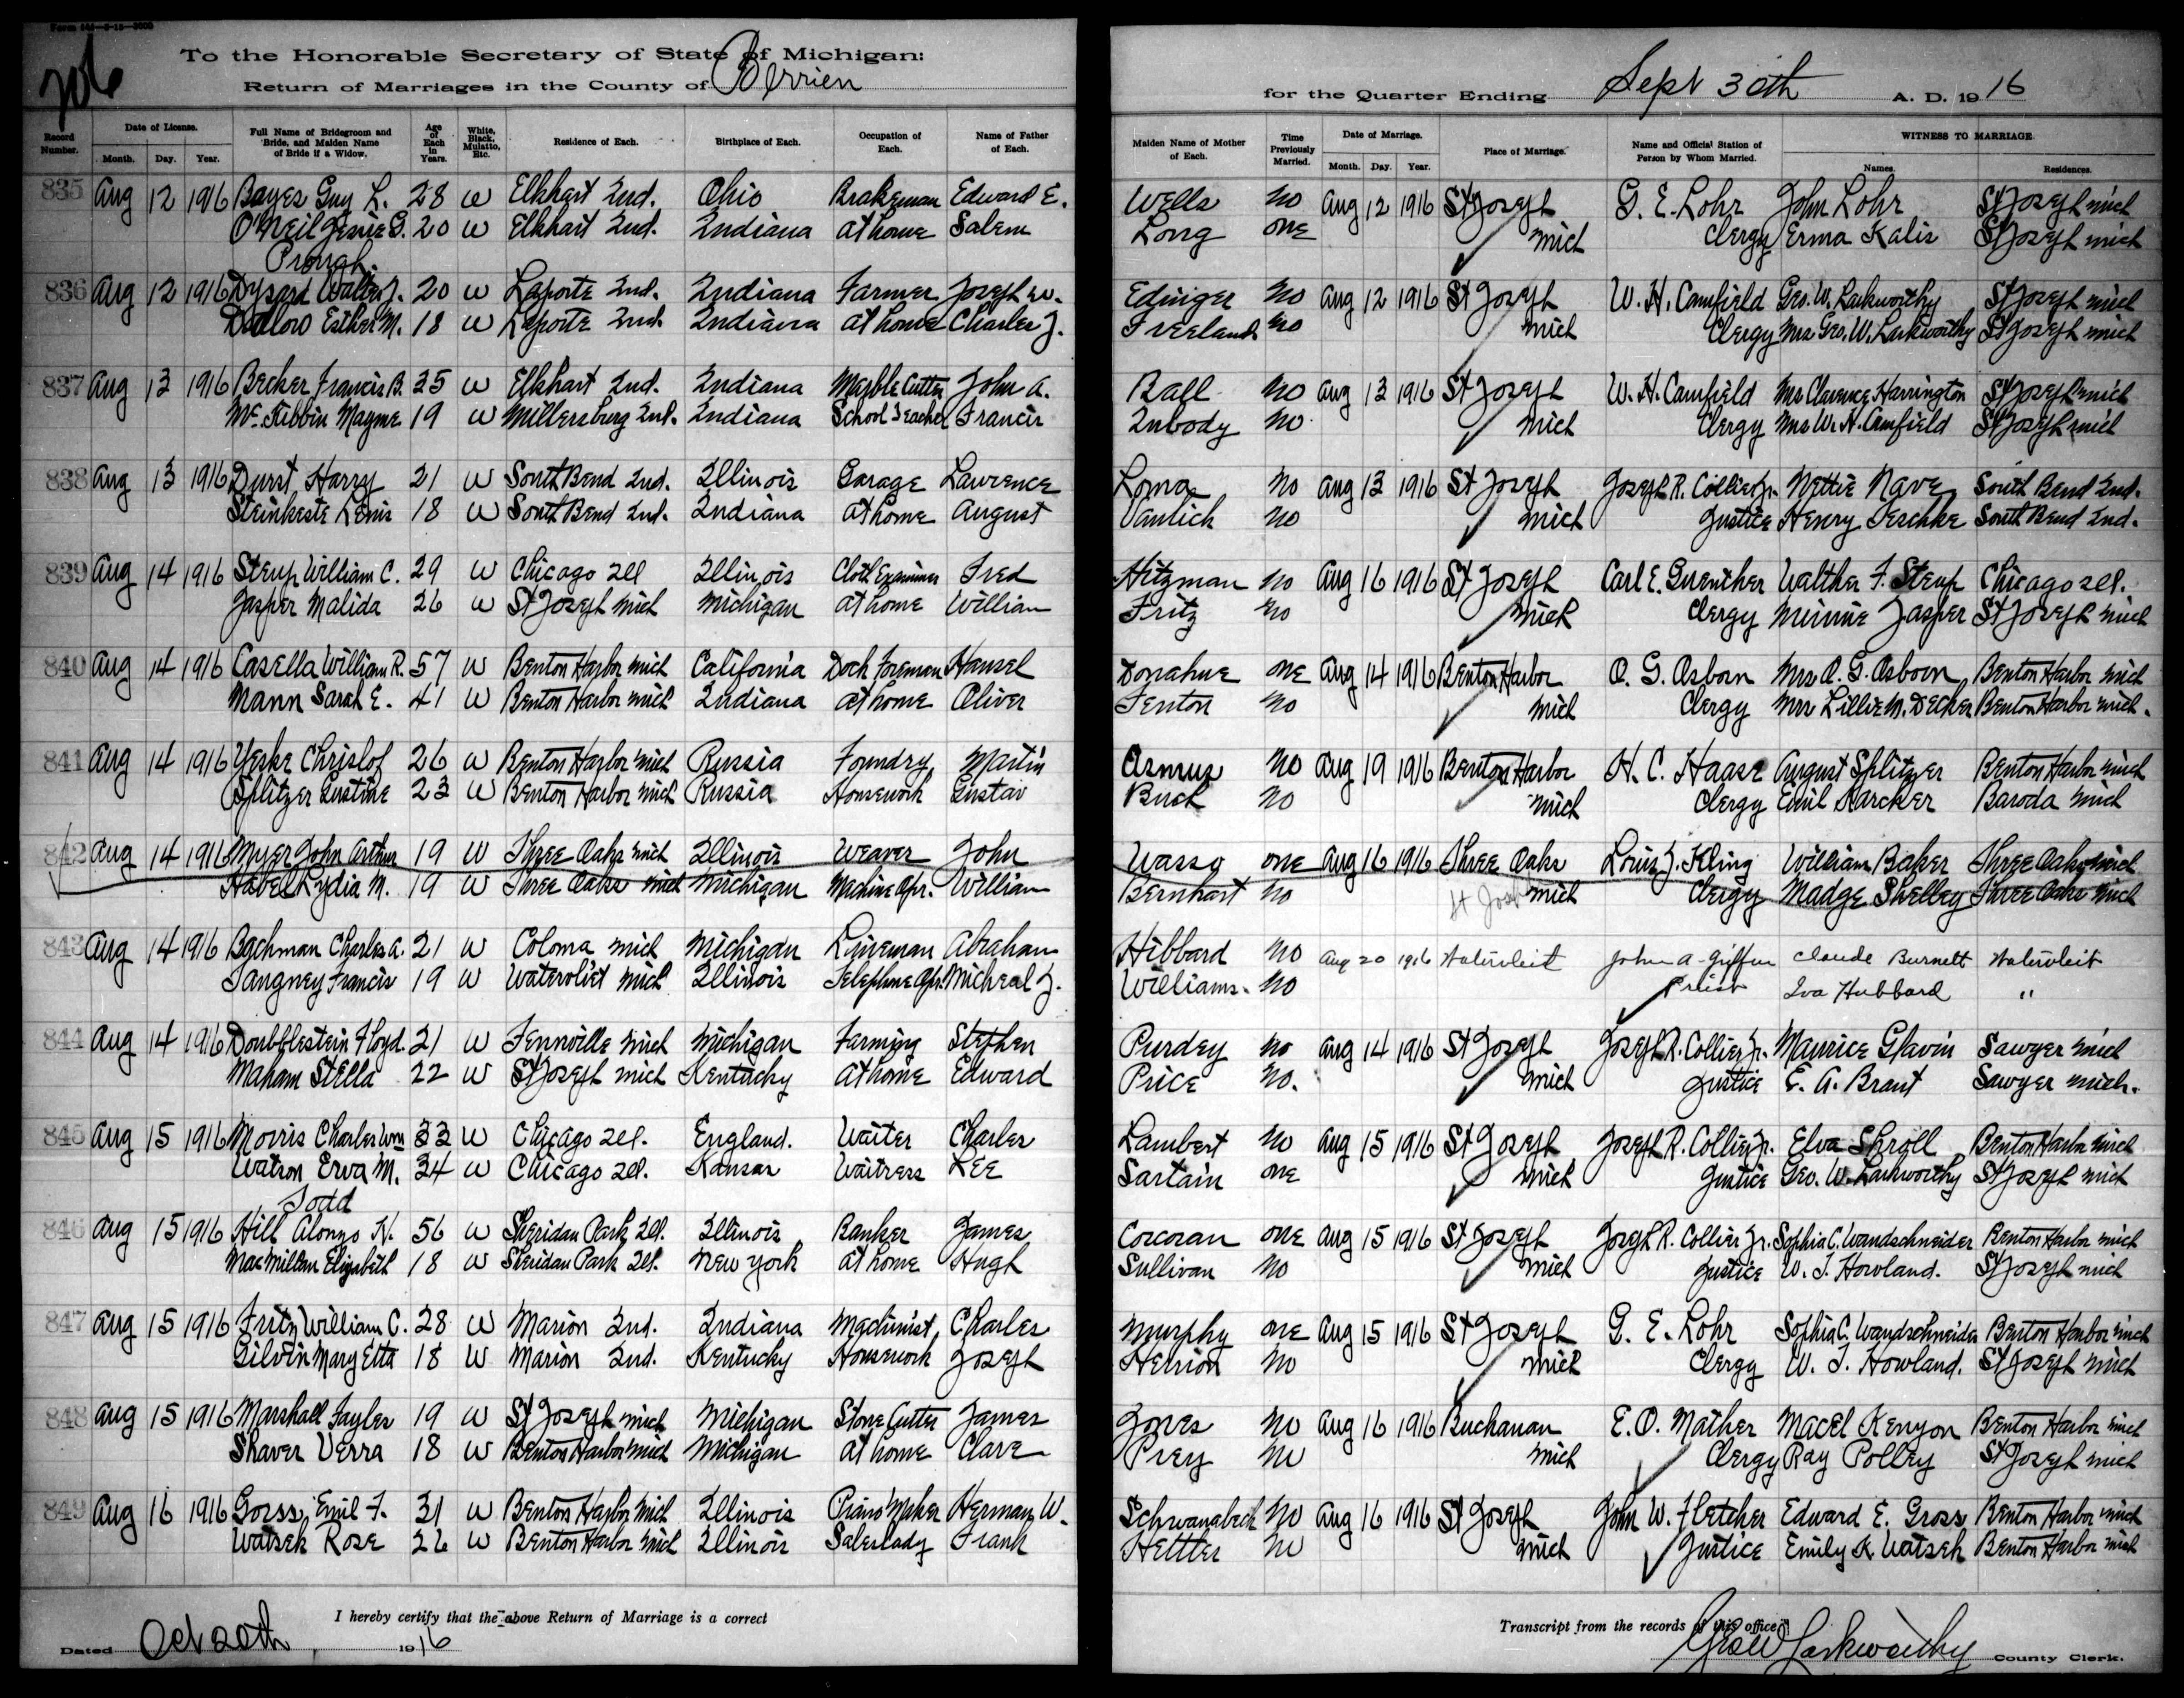 To the Honorable Secretary of State of Michigan:
706
Return of Marriages in the County of Berrien
for the Quarter Ending Sept 30th A. D. 1916
Record Number. Date of License. Month. Day. Year. Full Name of Bridegroom and Bride, and Maiden Name of Bride if a Widow. Age of Each in Years. White, Black, Mulatto, Etc. Residence of Each. Birthplace of Each. Occupation of Each. Name of Father of Each.
Maiden Name of Mother of Each. Time Previously Married. Date of Marriage. Month. Day. Year. Place of Marriage. Name and Official Station of Person by Whom Married. WITNESS TO MARRIAGE. Names. Residences.
835 Aug 12 1916 Bayes Guy L. 28 W Elkhart Ind. Ohio Brakeman Edward E. Wells No Aug 12 1916 St Joseph G. E. Lohr John Lohr St Joseph Mich
O'Neil Jessie G. 20 W Elkhart Ind. Indiana At home Salem Long One Mich Clergy Erma Kalis St Joseph Mich
Prough
836 Aug 12 1916 Dysard Walter J. 20 W Laporte Ind. Indiana Farmer Joseph W. Edinger No Aug 12 1916 St Joseph W. H. Camfield Geo. W. Larkworthy St Joseph Mich
Esther M. 18 W Laporte Ind. Indiana At home Charles J. Freeland No Mich Clergy Mrs Geo. W. Larkworthy St Joseph Mich
837 Aug 13 1916 Becker Francis B. 25 W Elkhart Ind. Indiana Marble Cutter John A. Ball No Aug 13 1916 St Joseph W. H. Camfield Mrs Clarence Harrington St Joseph Mich
McKibbin Mayme 19 W Millersburg Ind. Indiana School Teacher Francis Inbody No Mich Clergy Mrs W. H. Camfield St Joseph Mich
838 Aug 13 1916 Durst Harry 21 W South Bend Ind. Illinois Garage Lawrence Loma No Aug 13 1916 St Joseph Joseph R. Collier Jr. Nettie Nave South Bend Ind.
Steinkeste 18 W South Bend Ind. Indiana At home August No Mich Justice Henry Jeschke South Bend Ind.
839 Aug 14 1916 Steup William C. 29 W Chicago Ill Illinois Cloth Examiner Fred Hitzman No Aug 16 1916 St Joseph Carl E. Guenther Walther F. Steup Chicago Ill.
Jasper Malida 26 W St Joseph Mich Michigan At home William Fritz No Mich Clergy Minnie Jasper St Joseph Mich
840 Aug 14 1916 Casella William R. 57 W Benton Harbor Mich California Dock Foreman Hansel Donahue One Aug 14 1916 Benton Harbor O. G. Osborn Mrs O. G. Osborn Benton Harbor Mich
Mann Sarah E. 41 W Benton Harbor Mich Indiana At home Oliver Fenton No Mich Clergy Mrs Lillie M. Decker Benton Harbor Mich.
841 Aug 14 1916 Yeske Christof 26 W Benton Harbor Mich Russia Foundry Martin Armus No Aug 19 1916 Benton Harbor H. C. Haase August Splitzer Benton Harbor Mich
Splitzer Justine 23 W Benton Harbor Mich Russia Housework Gustav Buch No Mich Clergy Emil Karcher Baroda Mich
842 Aug 14 1916 Myer John Arthur 19 W Three Oaks Mich Illinois Weaver John Wasso One Aug 16 1916 Three Oaks Louis J. Kling William Baker Three Oaks Mich
Habel Lydia M. 19 W Three Oaks Mich Michigan Machine Opr. William Bernhart No St Joseph Mich Clergy Madge Shelley Three Oaks Mich
843 Aug 14 1916 Bachman Charles A. 21 W Coloma Mich Michigan Lineman Abraham Hibbard No Aug 20 1916 Watervleit John A. Giffin Claude Burnett Watervleit
Tangney Francis 19 W Watervliet Mich Illinois Telephone Opr. Micheal J. Williams. No Priest Iva Hubbard "
844 Aug 14 1916 Doubblestein Floyd. 21 W Fennville Mich Michigan Farming Stephen Purdey No Aug 14 1916 St Joseph Joseph R. Collier Jr. Maurice Glavin Sawyer Mich
Maham Stella 22 W St Joseph Mich Kentucky At home Edward Price No. Mich Justice E. A. Brant Sawyer Mich.
845 Aug 15 1916 Morris Charles Wm 33 W Chicago Ill. England. Waiter Charles Lambert No Aug 15 1916 St Joseph Joseph R. Collier Jr. Elva Shroll Benton Harbor Mich
Watson Erva M. 34 W Chicago Ill. Kansas Waitress Lee Sartain One Mich Justice Geo. W. Larkworthy St Joseph Mich
Todd
846 Aug 15 1916 Hill Alonzo H. 56 W Sheridan Park Ill. Illinois Banker James Corcoran One Aug 15 1916 St Joseph Joseph R. Collier Jr. Sophia C. Wandschneider Benton Harbor Mich
MacMillan Elizabeth 18 W Sheridan Park Ill. New York At home Hugh Sullivan No Mich Justice W. T. Howland. St Joseph Mich
847 Aug 15 1916 Fritz William C. 28 W Marion Ind. Indiana Machinist Charles Murphy One Aug 15 1916 St Joseph G. E. Lohr Sophia C. Wandschneider Benton Harbor Mich
Gilvin Mary Etta 18 W Marion Ind. Kentucky Housework Joseph Henion No Mich Clergy W. T. Howland. St Joseph Mich
848 Aug 15 1916 Marshall Fayles 19 W St Joseph Mich Michigan Stone Cutter James Jones No Aug 16 1916 Buchanan E. O. Mather Macel Kenyon Benton Harbor Mich
Shaver Verra 18 W Benton Harbor Mich Michigan At home Clare Prey No Mich Clergy Ray Polley St Joseph Mich
849 Aug 16 1916 Gorss, Emil F. 31 W Benton Harbor Mich Illinois Piano Maker Herman W. Schwanabech No Aug 16 1916 St Joseph John W. Fletcher Edward E. Gross Benton Harbor Mich
Watsek Rose 26 W Benton Harbor Mich Illinois Saleslady Frank Hettler No Mich Justice Emily K. Watsek Benton Harbor Mich
I hereby certify that the above Return of Marriage is a correct
Transcript from the records of this office.
Dated Oct 20th 1916
Geo W Larkworthy County Clerk.